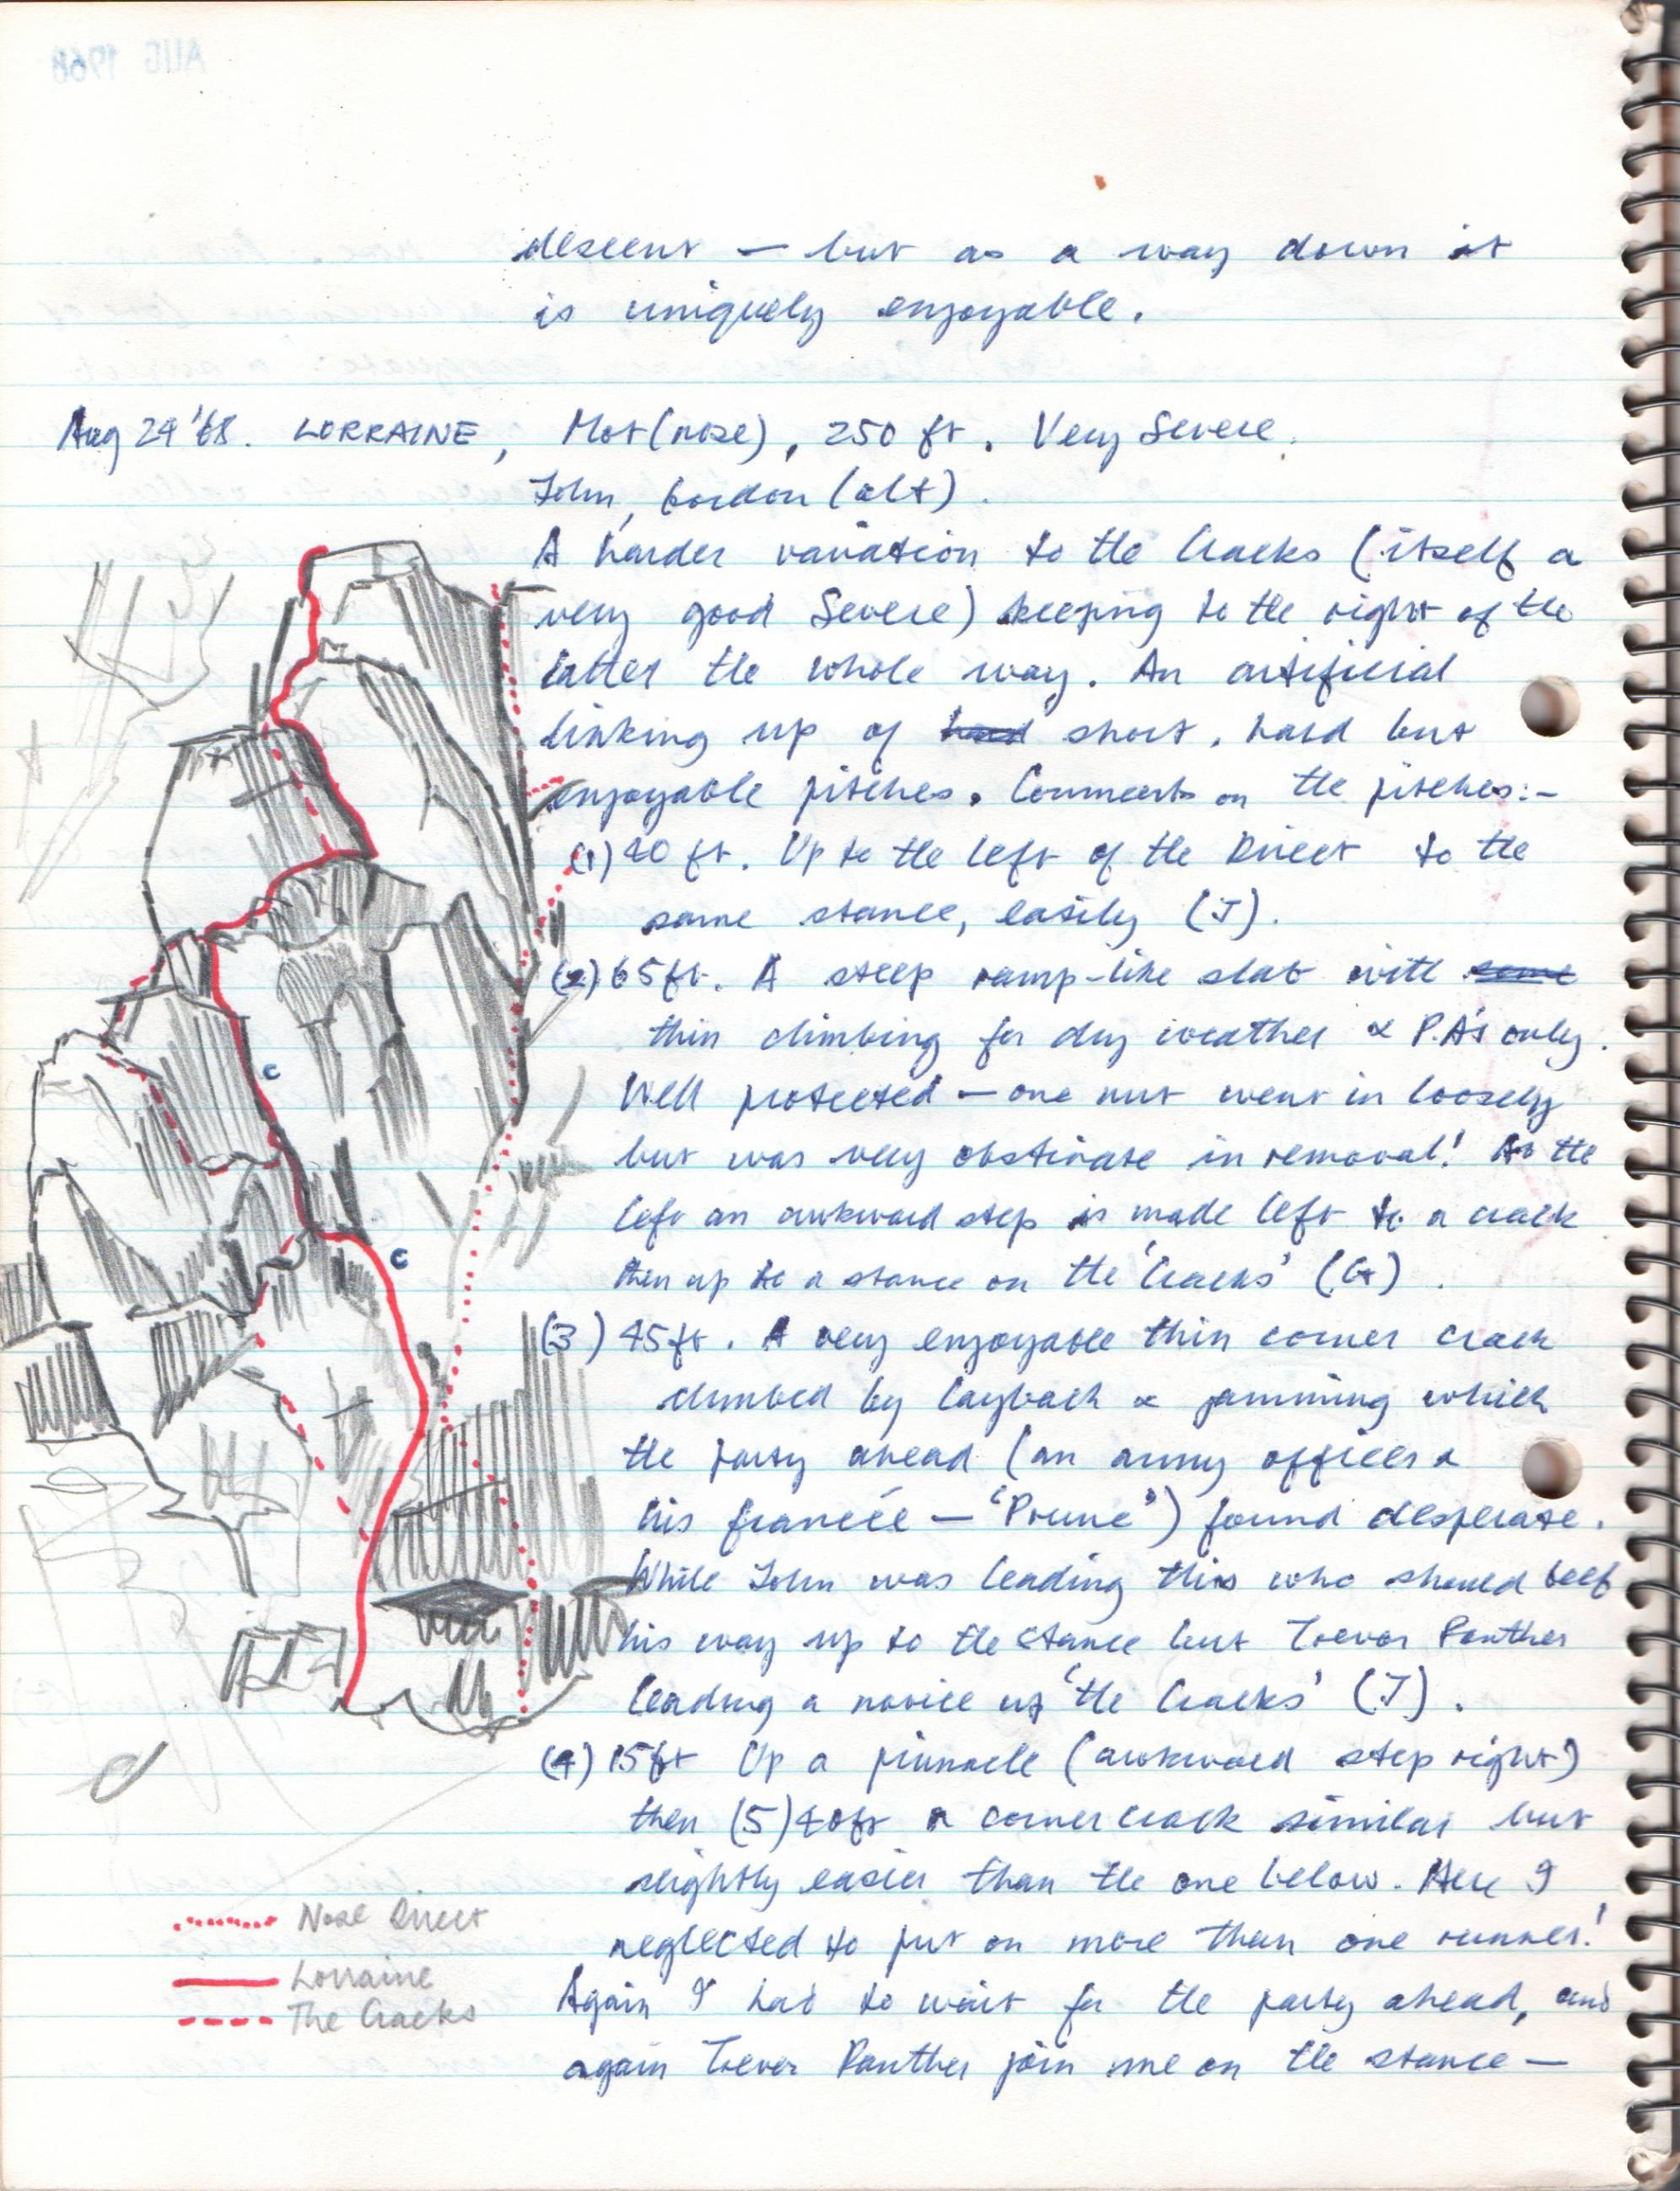 AUG 1968
descent — but as a way down it
is uniquely enjoyable.
Aug 24 '68. LORRAINE, Mot (nose), 250 ft. Very Severe.
John, Gordon (alt).
A harder variation to the Cracks (itself a
very good Severe) keeping to the right of the
latter the whole way. An artificial
linking up of hard short, hard but
enjoyable pitches. Comments on the pitches:-
(1) 40 ft. Up to the left of the Direct to the
same stance, easily (J).
(2) 65ft. A steep ramp-like slab with some
thin climbing for dry weather & P.A's only.
Well protected — one nut went in loosely
but was very obstinate in removal! At the
left an awkward step is made left to a crack
then up to a stance on the 'Cracks' (G).
(3) 45ft. A very enjoyable thin corner crack
climbed by layback & jamming which
the party ahead (an army officer &
his fiancée — 'Prune') found desperate.
While John was leading this who should belt
his way up to the stance but Trevor Panther
leading a novice up 'the Cracks' (J).
(4) 15ft Up a pinnacle (awkward step right)
then (5) 40ft a corner crack similar but
slightly easier than the one below. Here I
neglected to put on more than one runner!
Again I had to wait for the party ahead, and
again Trevor Panther join me on the stance —
c
c
Nose Direct
Lorraine
The Cracks